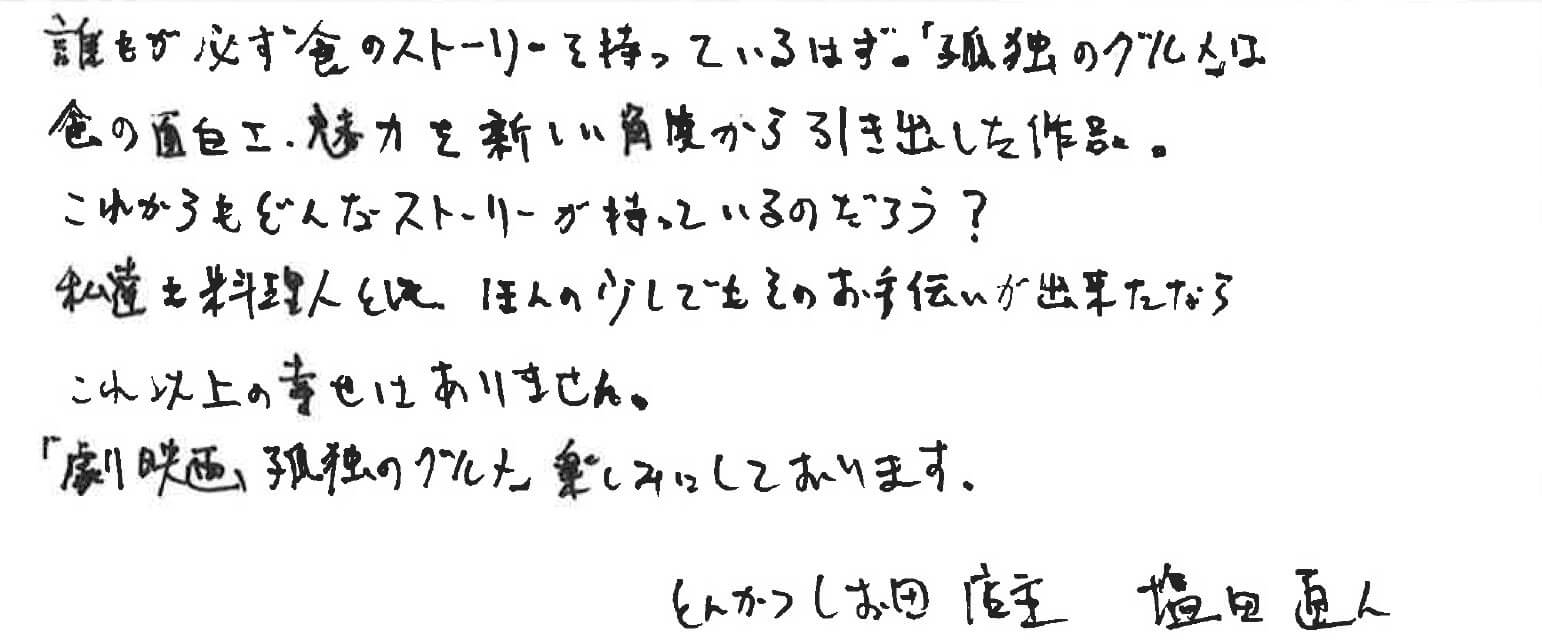 誰もが必ず食のストーリーを持っているはず。「孤独のグルメ」は
食の面白さ、魅力を新しい角度から引き出した作品。
これからもどんなストーリーが待っているのだろう？
私達も料理人として、ほんの少しでもそのお手伝いが出来たなら
これ以上の幸せはありません。
「劇映画、孤独のグルメ」楽しみにしております。
とんかつしお田 店主 塩田直人